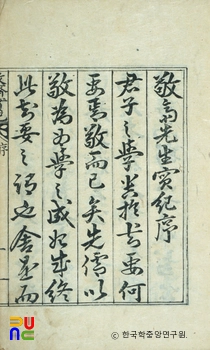 敬齋先生實紀序
君子之學貴於知要何
要焉敬而已矣先儒以
敬為為學之成始成終
此知要之謂也舍是而
序
© 한국학중앙연구원.